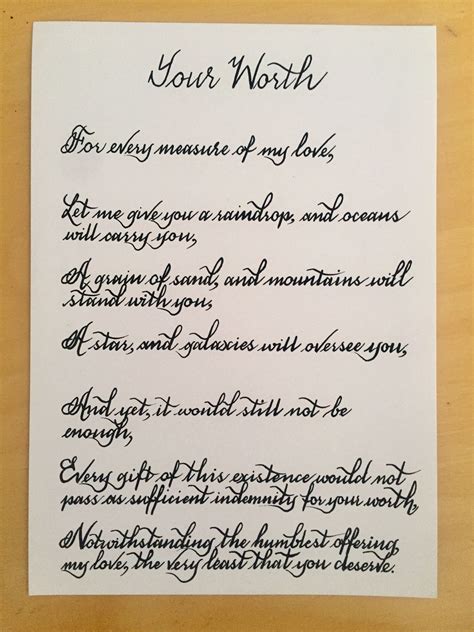 Your Worth
For every measure of my love,
Let me give you a raindrop, and oceans
will carry you,
A grain of sand, and mountains will
stand with you,
A star, and galaxies will oversee you,
And yet, it would still not be
enough,
Every gift of this existence would not
pass as sufficient indemnity for your worth,
Notwithstanding the humblest offering
my love, the very least that you deserve.